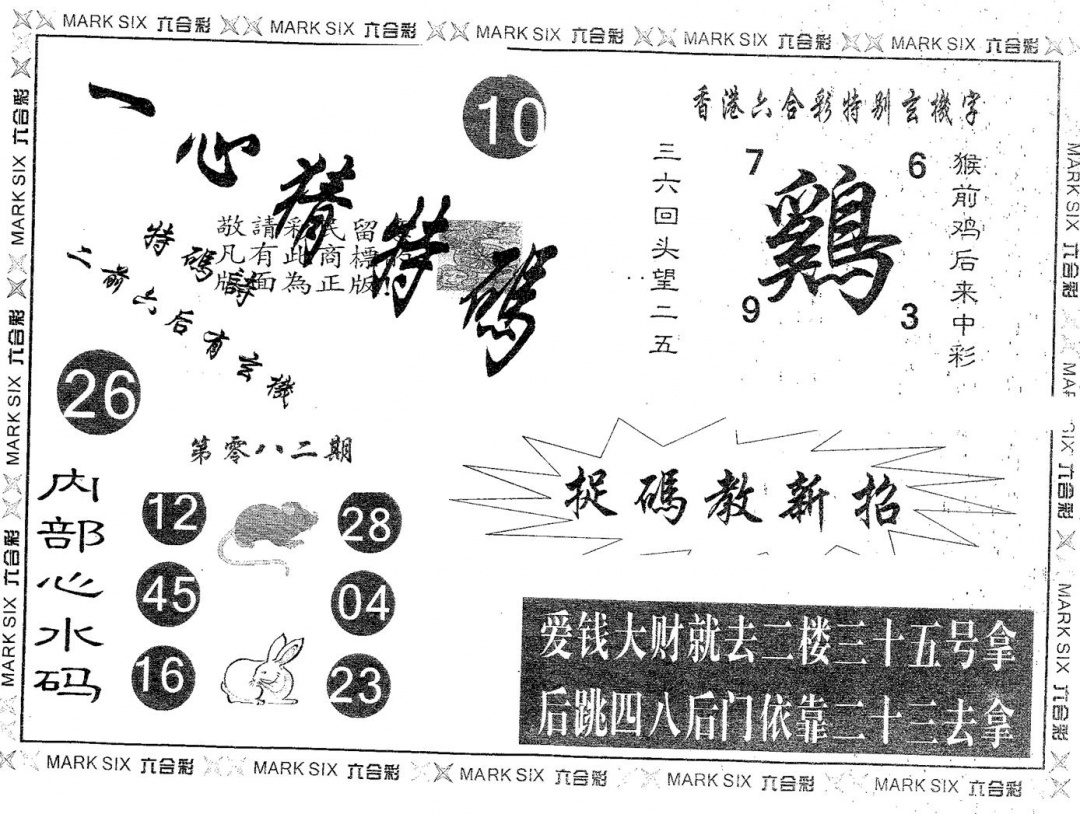 MARK SIX 六合彩 MARK SIX 六合彩 MARK SIX 六合彩 MARK SIX 六合彩 MARK SIX 六合彩
一心猜特碼
10
敬請彩民留
凡有此商標的
版面為正版!
特碼詩
二前六后有玄機
26
第零八二期
内部心水码
12
28
45
04
16
23
香港六合彩特别玄機字
三六回头望二五
7
6
鷄
9
3
猴前鸡后来中彩
捉碼教新招
爱钱大财就去二楼三十五号拿
后跳四八后门依靠二十三去拿
MARK SIX 六合彩 MARK SIX 六合彩 MARK SIX 六合彩
MARK SIX 六合彩 MARK SIX 六合彩 MARK SIX 六合彩
MARK SIX 六合彩 MARK SIX 六合彩 MARK SIX 六合彩 MARK SIX 六合彩 MARK SIX 六合彩